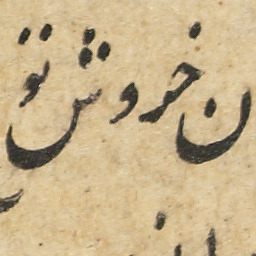 ن خروش تو